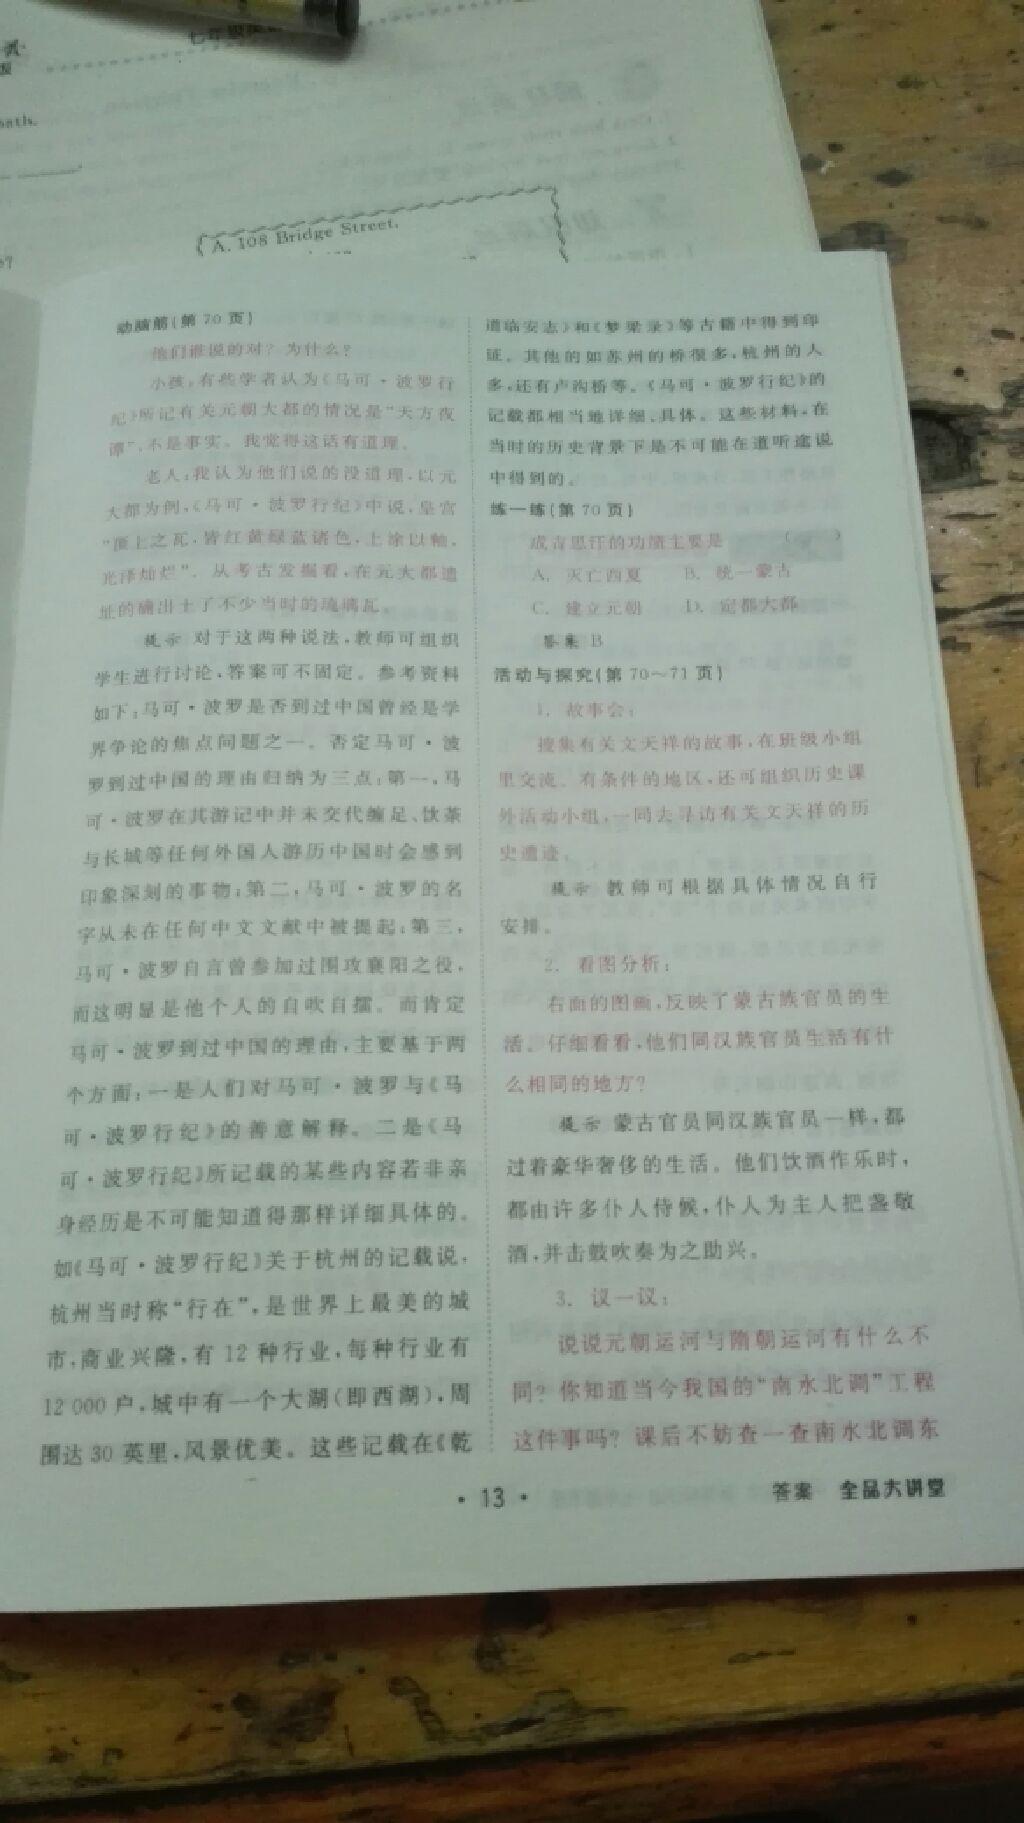 A. 108 Bridge Street.
动脑筋(第 70 页)
他们谁说的对?为什么?
小孩:有些学者认为《马可·波罗行
纪》所记有关元朝大都的情况是“天方夜
谭”,不是事实。我觉得这话有道理。
老人:我认为他们说的没道理,以元
大都为例,《马可·波罗行纪》中说,皇宫
“顶上之瓦,皆红黄绿蓝诸色,上涂以釉,
光泽灿烂”。从考古发掘看,在元大都遗
址的确出土了不少当时的琉璃瓦。
提示 对于这两种说法,教师可组织
学生进行讨论,答案可不固定。参考资料
如下:马可·波罗是否到过中国曾经是学
界争论的焦点问题之一。否定马可·波
罗到过中国的理由归纳为三点:第一,马
可·波罗在其游记中并未交代缠足、饮茶
与长城等任何外国人游历中国时会感到
印象深刻的事物;第二,马可·波罗的名
字从未在任何中文文献中被提起;第三,
马可·波罗自言曾参加过围攻襄阳之役,
而这明显是他个人的自吹自擂。而肯定
马可·波罗到过中国的理由,主要基于两
个方面:一是人们对马可·波罗与《马
可·波罗行纪》的善意解释。二是《马
可·波罗行纪》所记载的某些内容若非亲
身经历是不可能知道得那样详细具体的。
如《马可·波罗行纪》关于杭州的记载说,
杭州当时称“行在”,是世界上最美的城
市,商业兴隆,有 12 种行业,每种行业有
12 000 户,城中有一个大湖(即西湖),周
围达 30 英里,风景优美。这些记载在《乾
道临安志》和《梦梁录》等古籍中得到印
证。其他的如苏州的桥很多,杭州的人
多,还有卢沟桥等。《马可·波罗行纪》的
记载都相当地详细、具体。这些材料,在
当时的历史背景下是不可能在道听途说
中得到的。
练一练(第 70 页)
成吉思汗的功绩主要是 ( )
A. 灭亡西夏 B. 统一蒙古
C. 建立元朝 D. 定都大都
答案 B
活动与探究(第 70～71 页)
1. 故事会:
搜集有关文天祥的故事,在班级小组
里交流。有条件的地区,还可组织历史课
外活动小组,一同去寻访有关文天祥的历
史遗迹。
提示 教师可根据具体情况自行
安排。
2. 看图分析:
右面的图画,反映了蒙古族官员的生
活。仔细看看,他们同汉族官员生活有什
么相同的地方?
提示 蒙古官员同汉族官员一样,都
过着豪华奢侈的生活。他们饮酒作乐时,
都由许多仆人侍候,仆人为主人把盏敬
酒,并击鼓吹奏为之助兴。
3. 议一议:
说说元朝运河与隋朝运河有什么不
同?你知道当今我国的“南水北调”工程
这件事吗?课后不妨查一查南水北调东
· 13 ·
答案 全品大讲堂